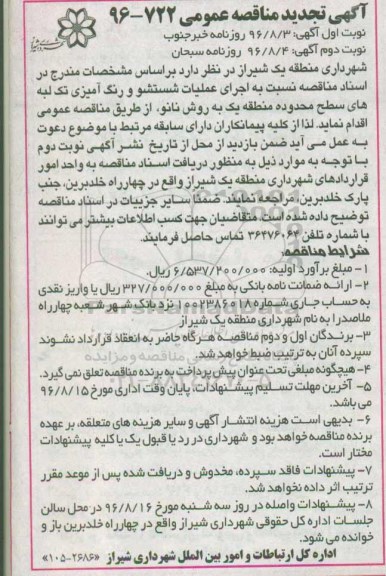 آگهی تجدید مناقصه عمومی ۷۲۲-۹۶
نوبت اول آگهی: ۹۶/۸/۳ روزنامه خبرجنوب
نوبت دوم آگهی: ۹۶/۸/۴ روزنامه سبحان
شهرداری منطقه یک شیراز در نظر دارد براساس مشخصات مندرج در
اسناد مناقصه نسبت به اجرای عملیات شستشو و رنگ آمیزی تک لبه
های سطح محدوده منطقه یک به روش نانو، از طریق مناقصه عمومی
اقدام نماید. لذا از کلیه پیمانکاران دارای سابقه مرتبط با موضوع دعوت
به عمل می آید ضمن بازدید از محل از تاریخ نشر آگهی نوبت دوم
با توجه به موارد ذیل به منظور دریافت اسناد مناقصه به واحد امور
قراردادهای شهرداری منطقه یک شیراز واقع در چهارراه خلدبرین، جنب
پارک خلدبرین مراجعه نمایند. ضمنا سایر جزییات در اسناد مناقصه
توضیح داده شده است. متقاضیان جهت کسب اطلاعات بیشتر می توانند
با شماره تلفن ۳۶۴۷۶۰۶۴ تماس حاصل فرمایند.
شرایط مناقصه:
۱- مبلغ برآورد اولیه: ۶/۵۳۷/۲۰۰/۰۰۰ ریال.
۲- ارائه ضمانت نامه بانکی به مبلغ ۳۲۷/۰۰۰/۰۰۰ ریال یا واریز نقدی
به حساب جاری شماره ۱۰۰۲۳۸۶۰۱۸ نزد بانک شهر شعبه چهارراه
ملاصدرا به نام شهرداری منطقه یک شیراز
۳- برندگان اول و دوم مناقصه هرگاه حاضر به انعقاد قرارداد نشوند
سپرده آنان به ترتیب ضبط خواهد شد.
۴- هیچگونه مبلغی تحت عنوان پیش پرداخت به برنده مناقصه تعلق نمی گیرد.
۵- آخرین مهلت تسلیم پیشنهادات، پایان وقت اداری مورخ ۹۶/۸/۱۵
می باشد.
۶- بدیهی است هزینه انتشار آگهی و سایر هزینه های متعلقه، بر عهده
برنده مناقصه خواهد بود و شهرداری در رد یا قبول یک یا کلیه پیشنهادات
مختار است.
۷- پیشنهادات فاقد سپرده، مخدوش و دریافت شده پس از موعد مقرر
ترتیب اثر داده نخواهد شد.
۸- پیشنهادات واصله در روز سه شنبه مورخ ۹۶/۸/۱۶ در محل سالن
جلسات اداره کل حقوقی شهرداری شیراز واقع در چهارراه خلدبرین باز و
خوانده می شود.
اداره کل ارتباطات و امور بین الملل شهرداری شیراز «۲۶۸۶-۱۰۵»